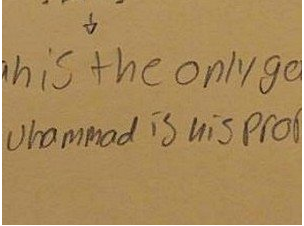 ah is the only go
uhammad is his prop